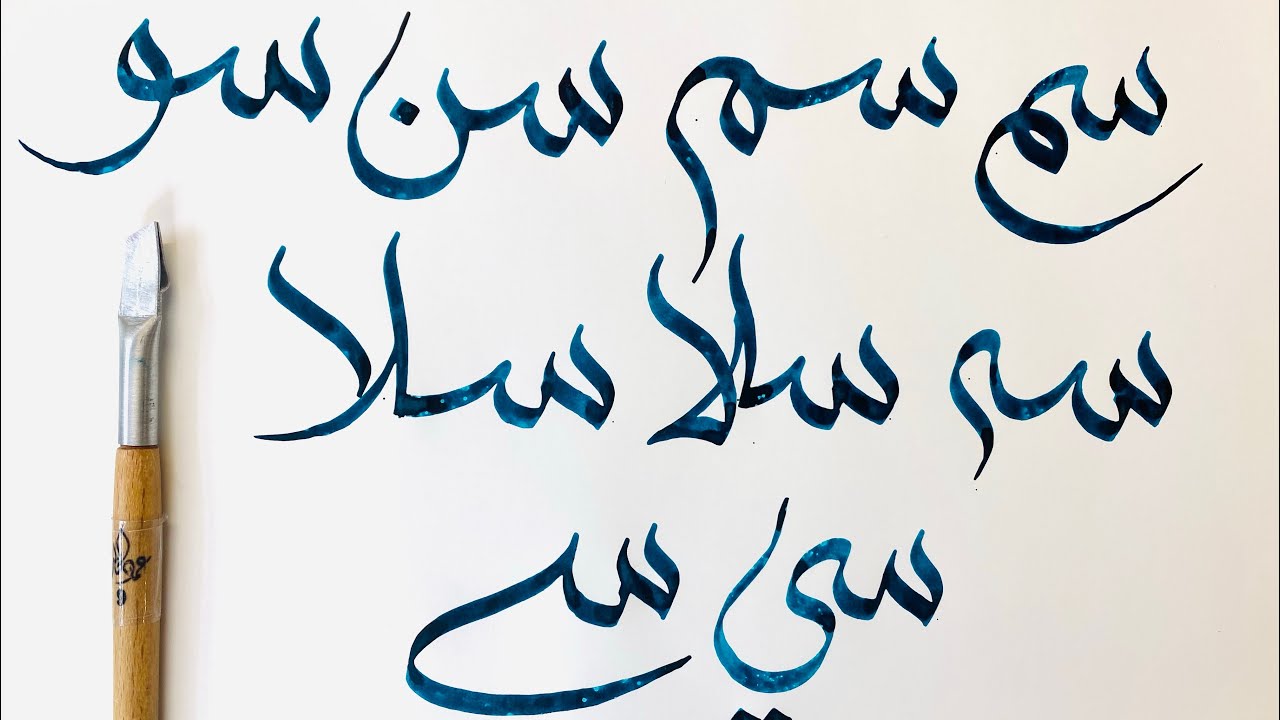 سم سم سن سو
سه سلا سلا
سي سے
9